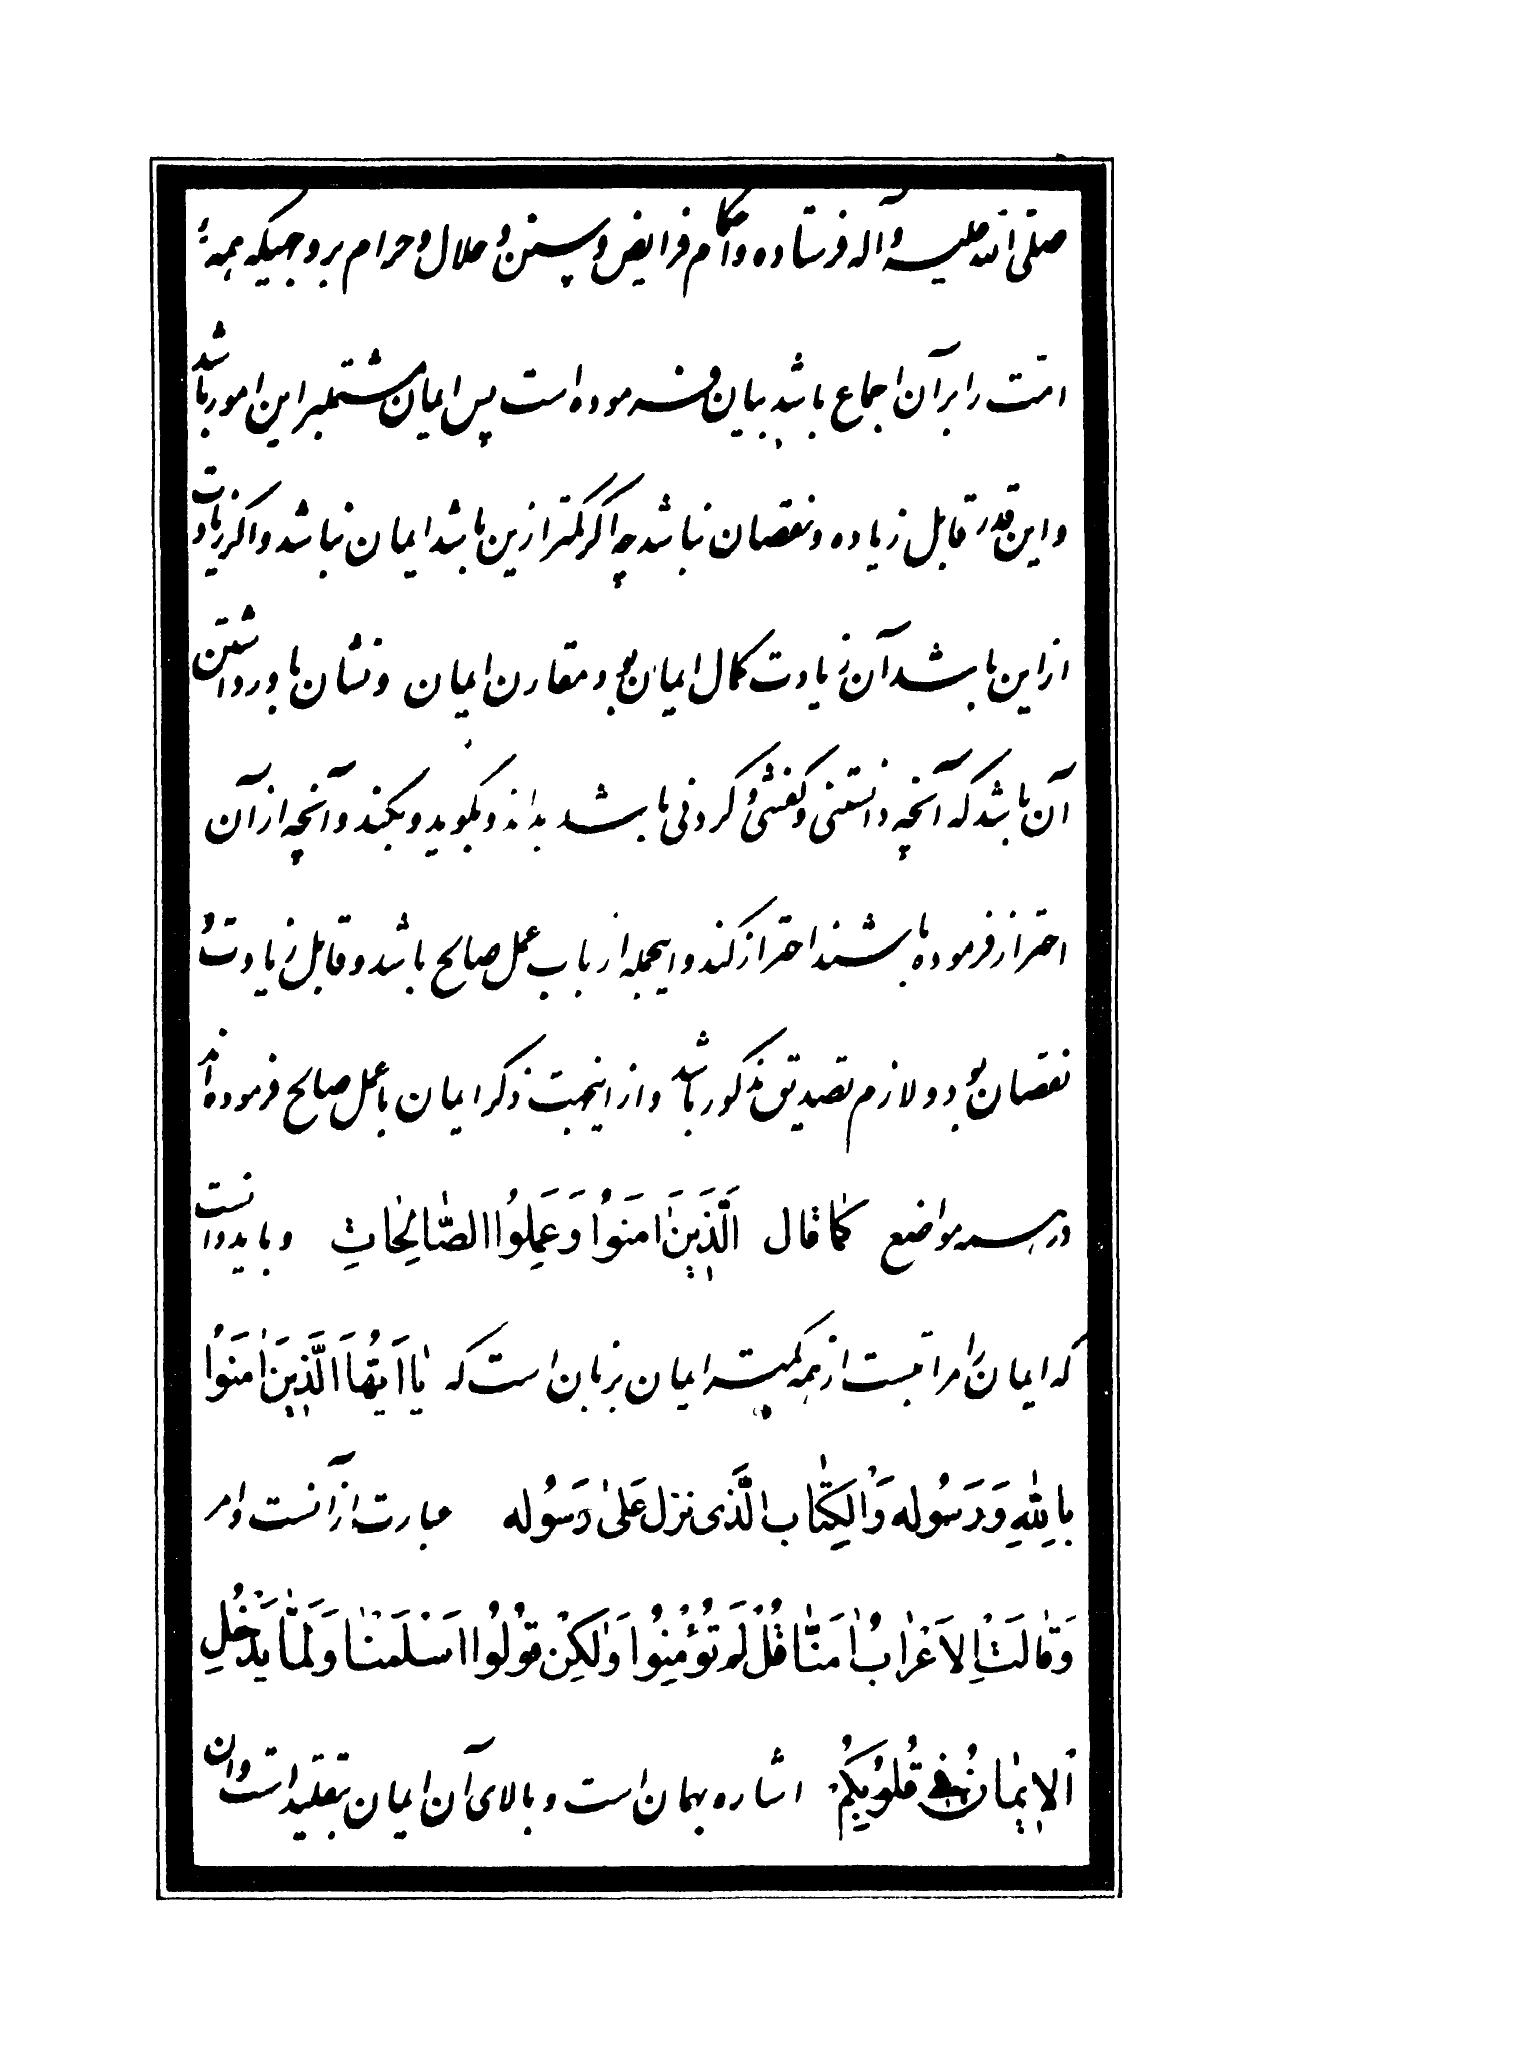 صلی الله علیه و آله فرستاده و احکام فرایض و سنن و حلال و حرام بر وجهیکه همهٔ
امّت را بر آن اجماع باشد بیان فرموده است پس ایمان مشتملبر این امور باشد
و این قدر قابل زیاده و نقصان نباشد چه اگر کمتر ازین باشد ایمان نباشد و اگر زیادت
از این باشد آن زیادت کمال ایمان بود و مقارن ایمان و نشان باور داشتن
آن باشد که آنچه دانستنی و گفتنی و کردنی باشد بداند و بگوید و بکند و آنچه از آن
احتراز فرموده باشند احتراز کند و اینجمله از باب عمل صالح باشد و قابل زیادت و
نقصان بود و لازم تصدیق مذکور باشد و از اینجهت ذکر ایمان با عمل صالح فرموده‌اند
در همه مواضع کَمٰا قال اَلَّذَینَ اٰمَنوُا وَ عَمِلُوا الصّٰالِحٰاتِ و باید دانست
که ایمان را مراتبست از همه کمتر ایمان بزبان است که یٰا اَیّهُاَ الَّذینَ اٰمَنوُا
بِاللّٰهِ وَ رَسُوله وَالْکِتٰاب الَّذی نزل عَلیٰ رَسُوله عبارت از آنست و امر
وَ قٰالَتْ اِلاَعْرٰابُ اٰمَنّٰا قُلْ لَمْ تُؤْمِنُوا وَلٰکِنْ قوُلُوا اَسْلَمْنٰا وَ لَمّٰا یَدْخُلِ
اَلاٖیمٰانُ فی قُلوُبِکُمْ اشاره بهمان است و بالای آن ایمان بتقلید است و آن